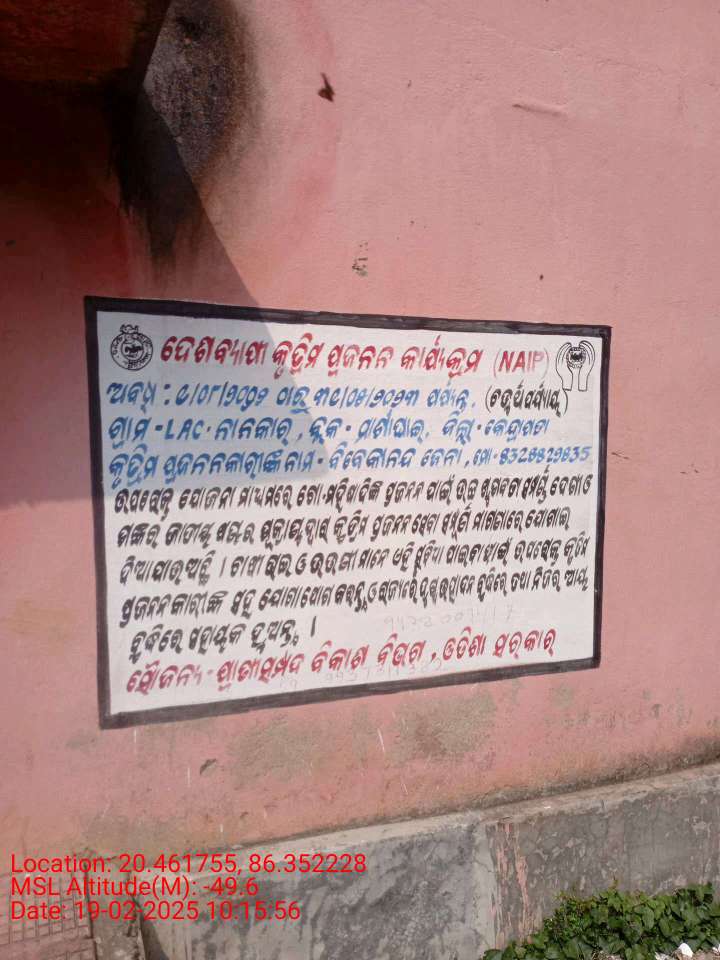 ଦେଶବ୍ୟାପୀ କୃତ୍ରିମ ପ୍ରଜନନ କାର୍ଯ୍ୟକ୍ରମ (NAIP)
ଅବଧି : ୧/୦୮/୨୦୨୨ ଠାରୁ ୩୧/୦୫/୨୦୨୩ ପର୍ଯ୍ୟନ୍ତ, (ଚତୁର୍ଥ ପର୍ଯ୍ୟାୟ)
ଗ୍ରାମ - LAC - ନାନକାର, ବ୍ଲକ - ମାର୍ଶାଘାଇ, ଜିଲ୍ଲା - କେନ୍ଦ୍ରାପଡା
କୃତ୍ରିମ ପ୍ରଜନନକାରୀଙ୍କ ନାମ - ବିବେକାନନ୍ଦ ଜେନା, ମୋ -
ଉପରୋକ୍ତ ଯୋଜନା ମାଧ୍ୟମରେ ଗୋ-ମହିଷାଦିଙ୍କ ପ୍ରଜନନ ପାଇଁ ଉଚ୍ଚ ଗୁଣବତ୍ତା ସମ୍ପନ୍ନ ଦେଶୀ ଓ
ଶଙ୍କର ଜାତୀୟ ଷଣ୍ଢର ଶୁକ୍ରାଣୁ ଦ୍ୱାରା କୃତ୍ରିମ ପ୍ରଜନନ ସେବା ସମ୍ପୂର୍ଣ୍ଣ ମାଗଣାରେ ଯୋଗାଇ
ଦିଆଯାଉଅଛି । ଚାଷୀ ଭାଇ ଓ ଭଉଣୀ ମାନେ ଏହି ସୁବିଧା ପାଇବା ପାଇଁ ଉପରୋକ୍ତ କୃତ୍ରିମ
ପ୍ରଜନନକାରୀଙ୍କ ସହ ଯୋଗାଯୋଗ କରନ୍ତୁ ଓ ରାଜ୍ୟରେ ଦୁଗ୍ଧ ଉତ୍ପାଦନ ବୃଦ୍ଧିରେ ତଥା ନିଜର ଆୟ
ବୃଦ୍ଧିରେ ସହାୟକ ହୁଅନ୍ତୁ ।
ସୌଜନ୍ୟ - ପ୍ରାଣୀସମ୍ପଦ ବିକାଶ ବିଭାଗ, ଓଡିଶା ସରକାର
Location: 20.461755, 86.352228
MSL Altitude(M): -49.6
Date: 19-02-2025 10:15:56